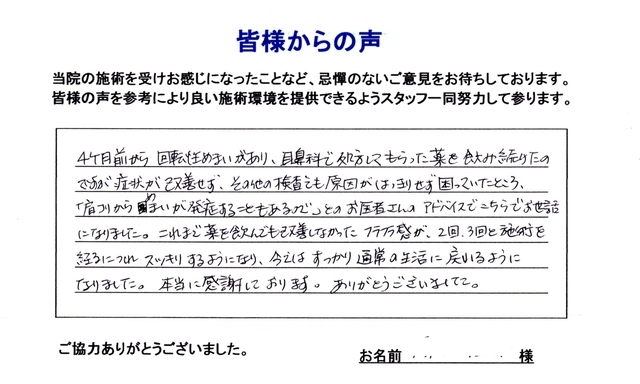 皆様からの声
当院の施術を受けお感じになったことなど、忌憚のないご意見をお待ちしております。
皆様の声を参考により良い施術環境を提供できるようスタッフ一同努力して参ります。
4ケ月前から回転性めまいがあり、耳鼻科で処方してもらった薬を飲み続けたの
ですが症状が改善せず、その他の検査でも原因がはっきりせず困っていたところ、
「肩コリからめまいが発症することもあるので」とのお医者さんのアドバイスでこちらでお世話
になりました。これまで薬を飲んでも改善しなかったフラフラ感が、2回、3回と施術を
経るにつれスッキリするようになり、今ではすっかり通常の生活に戻れるように
なりました。本当に感謝しております。ありがとうございました。
ご協力ありがとうございました。
お名前 様